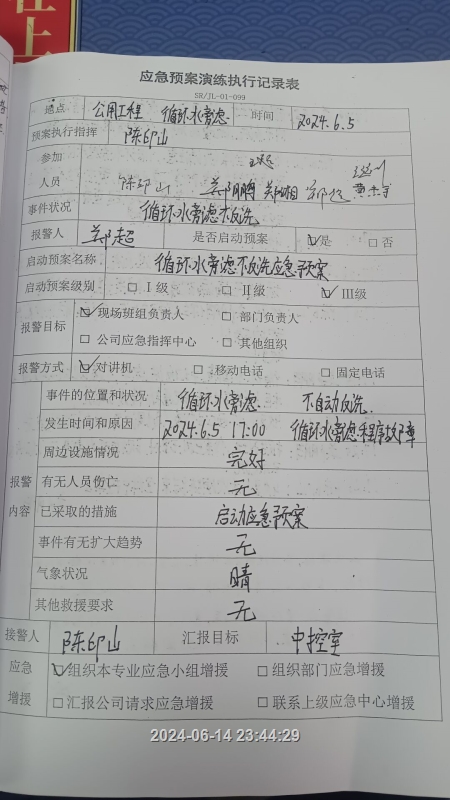 应急预案演练执行记录表
SR/JL-01-099
地点 公用工程 循环水旁滤 时间 2024.6.5
预案执行指挥 陈印山
参加
人员 陈印山
事件状况 循环水旁滤不反洗
报警人 郑超 是否启动预案 ☑是 □否
启动预案名称 循环水旁滤不反洗应急预案
启动预案级别 □Ⅰ级 □Ⅱ级 ☑Ⅲ级
报警目标 ☑现场班组负责人 □部门负责人
□公司应急指挥中心 □其他组织
报警方式 ☑对讲机 □移动电话 □固定电话
事件的位置和状况 循环水旁滤. 不自动反洗.
发生时间和原因 2024.6.5 17:00 循环水旁滤程序故障
周边设施情况 完好
报警 有无人员伤亡 无
内容 已采取的措施 启动应急预案
事件有无扩大趋势 无
气象状况 晴
其他救援要求 无
接警人 陈印山 汇报目标 中控室
应急 ☑组织本专业应急小组增援 □组织部门应急增援
增援 □汇报公司请求应急增援 □联系上级应急中心增援
2024-06-14 23:44:29